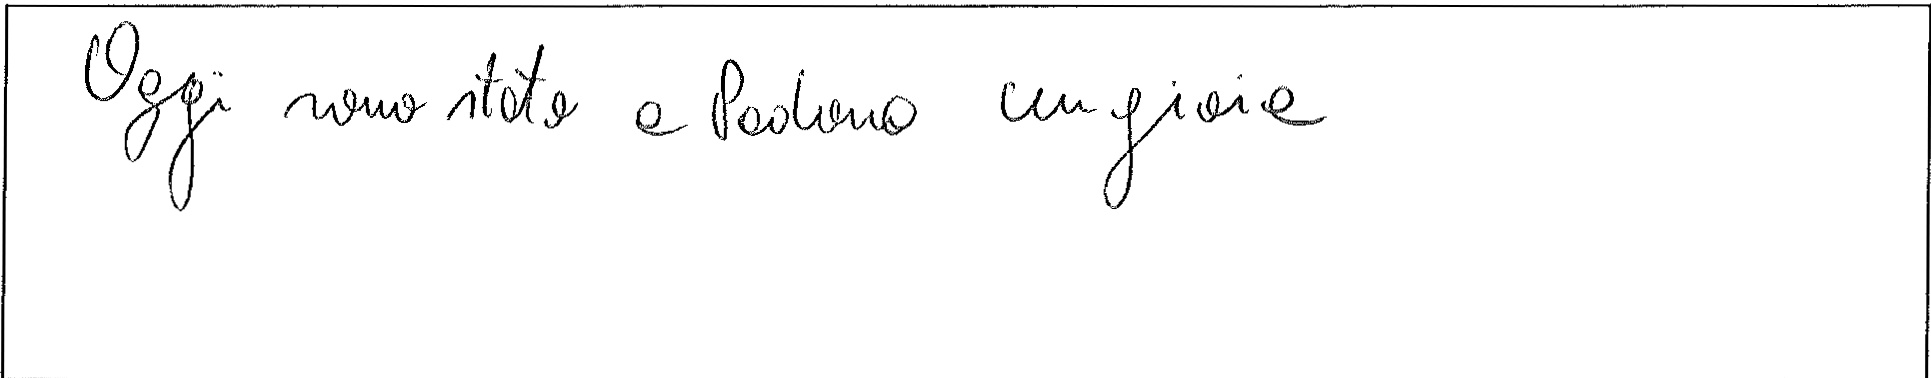 Oggi sono stata a Padova con gioia